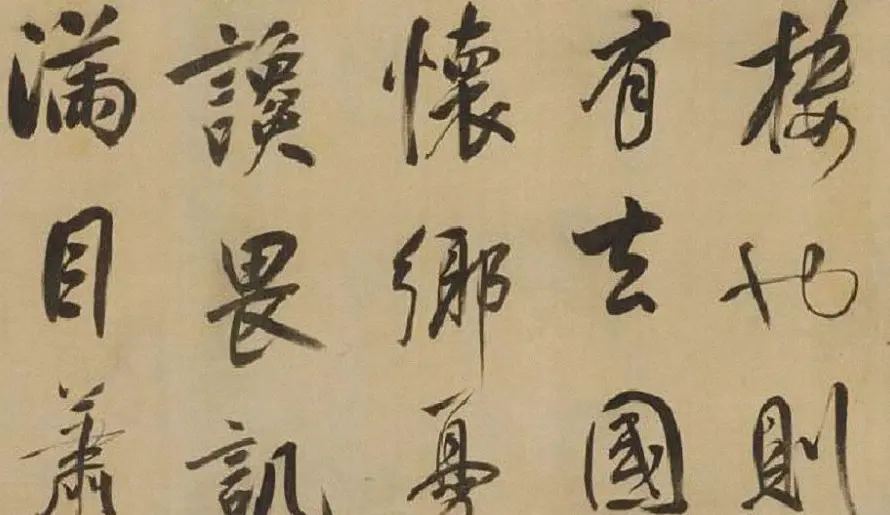 樓也則
有去國
懷鄉憂
讒畏譏
滿目蕭